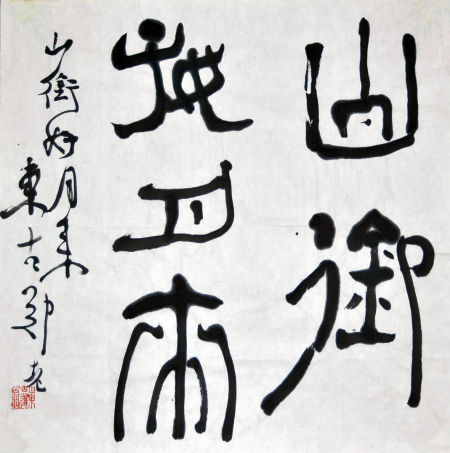 山銜
好月來
山銜好月来
東古鄭